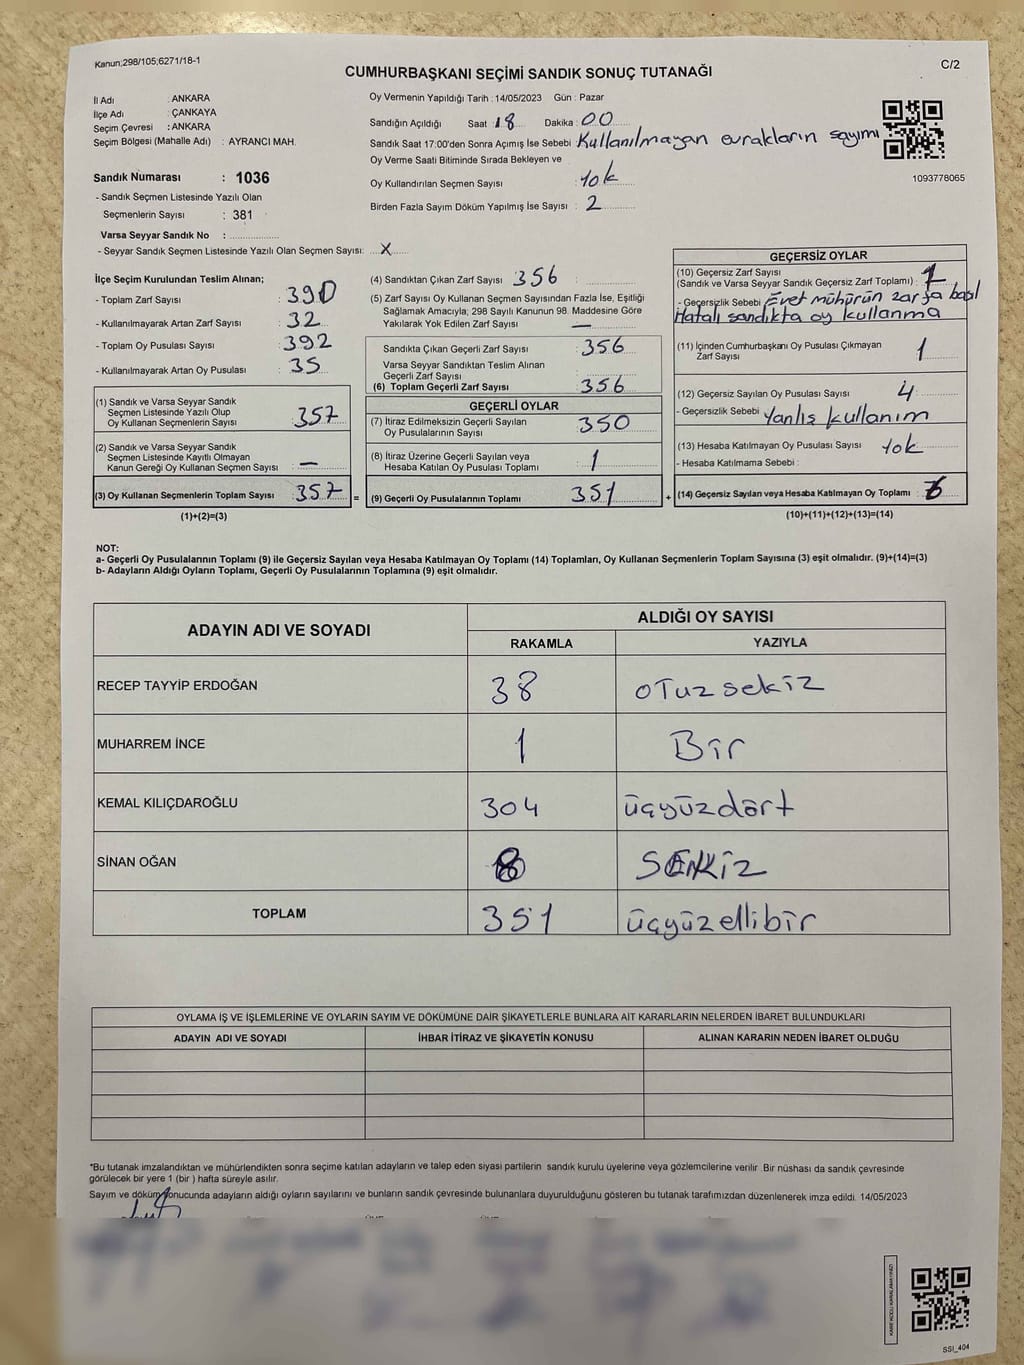 Kanun;298/105;6271/18-1
C/2
CUMHURBAŞKANI SEÇİMİ SANDIK SONUÇ TUTANAĞI
İl Adı : ANKARA
İlçe Adı : ÇANKAYA
Seçim Çevresi : ANKARA
Seçim Bölgesi (Mahalle Adı) : AYRANCI MAH.
Oy Vermenin Yapıldığı Tarih : 14/05/2023 Gün : Pazar
Sandığın Açıldığı Saat : 18 Dakika : 00
Sandık Saat 17:00'den Sonra Açımış İse Sebebi Kullanılmayan evrakların sayımı
Oy Verme Saati Bitiminde Sırada Bekleyen ve
Oy Kullandırılan Seçmen Sayısı : Yok
Birden Fazla Sayım Döküm Yapılmış İse Sayısı : 2
1093778065
Sandık Numarası : 1036
- Sandık Seçmen Listesinde Yazılı Olan
Seçmenlerin Sayısı : 381
Varsa Seyyar Sandık No :
- Seyyar Sandık Seçmen Listesinde Yazılı Olan Seçmen Sayısı: X
İlçe Seçim Kurulundan Teslim Alınan;
- Toplam Zarf Sayısı : 390
- Kullanılmayarak Artan Zarf Sayısı : 32
- Toplam Oy Pusulası Sayısı : 392
- Kullanılmayarak Artan Oy Pusulası : 35
(1) Sandık ve Varsa Seyyar Sandık
Seçmen Listesinde Yazılı Olup
Oy Kullanan Seçmenlerin Sayısı : 357
(2) Sandık ve Varsa Seyyar Sandık
Seçmen Listesinde Kayıtlı Olmayan
Kanun Gereği Oy Kullanan Seçmen Sayısı : —
(3) Oy Kullanan Seçmenlerin Toplam Sayısı : 357 =
(1)+(2)=(3)
(4) Sandıktan Çıkan Zarf Sayısı 356 :
(5) Zarf Sayısı Oy Kullanan Seçmen Sayısından Fazla İse, Eşitliği
Sağlamak Amacıyla; 298 Sayılı Kanunun 98. Maddesine Göre
Yakılarak Yok Edilen Zarf Sayısı : —
Sandıkta Çıkan Geçerli Zarf Sayısı : 356
Varsa Seyyar Sandıktan Teslim Alınan
Geçerli Zarf Sayısı :
(6) Toplam Geçerli Zarf Sayısı : 356
GEÇERLİ OYLAR
(7) İtiraz Edilmeksizin Geçerli Sayılan
Oy Pusulalarının Sayısı : 350
(8) İtiraz Üzerine Geçerli Sayılan veya
Hesaba Katılan Oy Pusulası Toplamı : 1
(9) Geçerli Oy Pusulalarının Toplamı : 351 +
GEÇERSİZ OYLAR
(10) Geçersiz Zarf Sayısı
(Sandık ve Varsa Seyyar Sandık Geçersiz Zarf Toplamı) : 1
- Geçersizlik Sebebi : Evet mühürün zarfa basıl
Hatalı sandıkta oy kullanma
(11) İçinden Cumhurbaşkanı Oy Pusulası Çıkmayan
Zarf Sayısı : 1
(12) Geçersiz Sayılan Oy Pusulası Sayısı : 4
- Geçersizlik Sebebi : Yanlış kullanım
(13) Hesaba Katılmayan Oy Pusulası Sayısı : Yok
- Hesaba Katılmama Sebebi :
(14) Geçersiz Sayılan veya Hesaba Katılmayan Oy Toplamı : 6
(10)+(11)+(12)+(13)=(14)
NOT:
a- Geçerli Oy Pusulalarının Toplamı (9) ile Geçersiz Sayılan veya Hesaba Katılmayan Oy Toplamı (14) Toplamları, Oy Kullanan Seçmenlerin Toplam Sayısına (3) eşit olmalıdır. (9)+(14)=(3)
b- Adayların Aldığı Oyların Toplamı, Geçerli Oy Pusulalarının Toplamına (9) eşit olmalıdır.
ADAYIN ADI VE SOYADI
ALDIĞI OY SAYISI
RAKAMLA YAZIYLA
RECEP TAYYİP ERDOĞAN 38 otuz sekiz
MUHARREM İNCE 1 Bir
KEMAL KILIÇDAROĞLU 304 üçyüzdört
SİNAN OĞAN 8 SEKİZ
TOPLAM 351 üçyüzellibir
OYLAMA İŞ VE İŞLEMLERİNE VE OYLARIN SAYIM VE DÖKÜMÜNE DAİR ŞİKAYETLERLE BUNLARA AİT KARARLARIN NELERDEN İBARET BULUNDUKLARI
ADAYIN ADI VE SOYADI İHBAR İTİRAZ VE ŞİKAYETİN KONUSU ALINAN KARARIN NEDEN İBARET OLDUĞU
*Bu tutanak imzalandıktan ve mühürlendikten sonra seçime katılan adayların ve talep eden siyasi partilerin sandık kurulu üyelerine veya gözlemcilerine verilir. Bir nüshası da sandık çevresinde
görülecek bir yere 1 (bir ) hafta süreyle asılır.
Sayım ve döküm sonucunda adayların aldığı oyların sayılarını ve bunların sandık çevresinde bulunanlara duyurulduğunu gösteren bu tutanak tarafımızdan düzenlenerek imza edildi. 14/05/2023
SSI_404